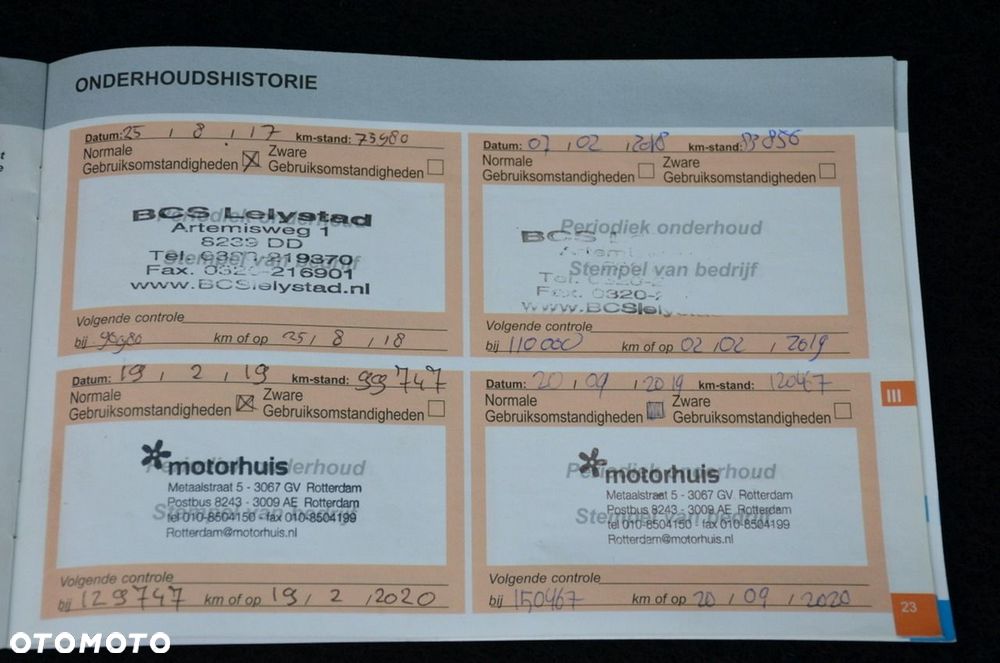 ONDERHOUDSHISTORIE
Datum: 25 / 8 / 17 km-stand: 73980
Normale Gebruiksomstandigheden
Zware Gebruiksomstandigheden
Periodiek onderhoud
Stempel van bedrijf
BCS Lelystad
Artemisweg 1
8239 DD
Tel. 0320-219370
Fax. 0320-216901
www.BCSlelystad.nl
Volgende controle
bij km of op 25 / 8 / 18
Datum: 02 / 02 / 2018 km-stand: 83856
Normale Gebruiksomstandigheden
Zware Gebruiksomstandigheden
Periodiek onderhoud
Stempel van bedrijf
BCS
Artemi
Tel. 0320-2
Fax. 0320-2
www.BCSlelystad
Volgende controle
bij 110000 km of op 02 / 02 / 2019
Datum: 19 / 2 / 19 km-stand: 99747
Normale Gebruiksomstandigheden
Zware Gebruiksomstandigheden
Periodiek onderhoud
Stempel van bedrijf
motorhuis
Metaalstraat 5 - 3067 GV Rotterdam
Postbus 8243 - 3009 AE Rotterdam
tel 010-8504150 - fax 010-8504199
Rotterdam@motorhuis.nl
Volgende controle
bij 129747 km of op 19 / 2 / 2020
Datum: 20 / 09 / 2019 km-stand: 120467
Normale Gebruiksomstandigheden
Zware Gebruiksomstandigheden
Periodiek onderhoud
Stempel van bedrijf
motorhuis
Metaalstraat 5 - 3067 GV Rotterdam
Postbus 8243 - 3009 AE Rotterdam
tel 010-8504150 - fax 010-8504199
Rotterdam@motorhuis.nl
Volgende controle
bij 150467 km of op 20 / 09 / 2020
III
23
OTOMOTO